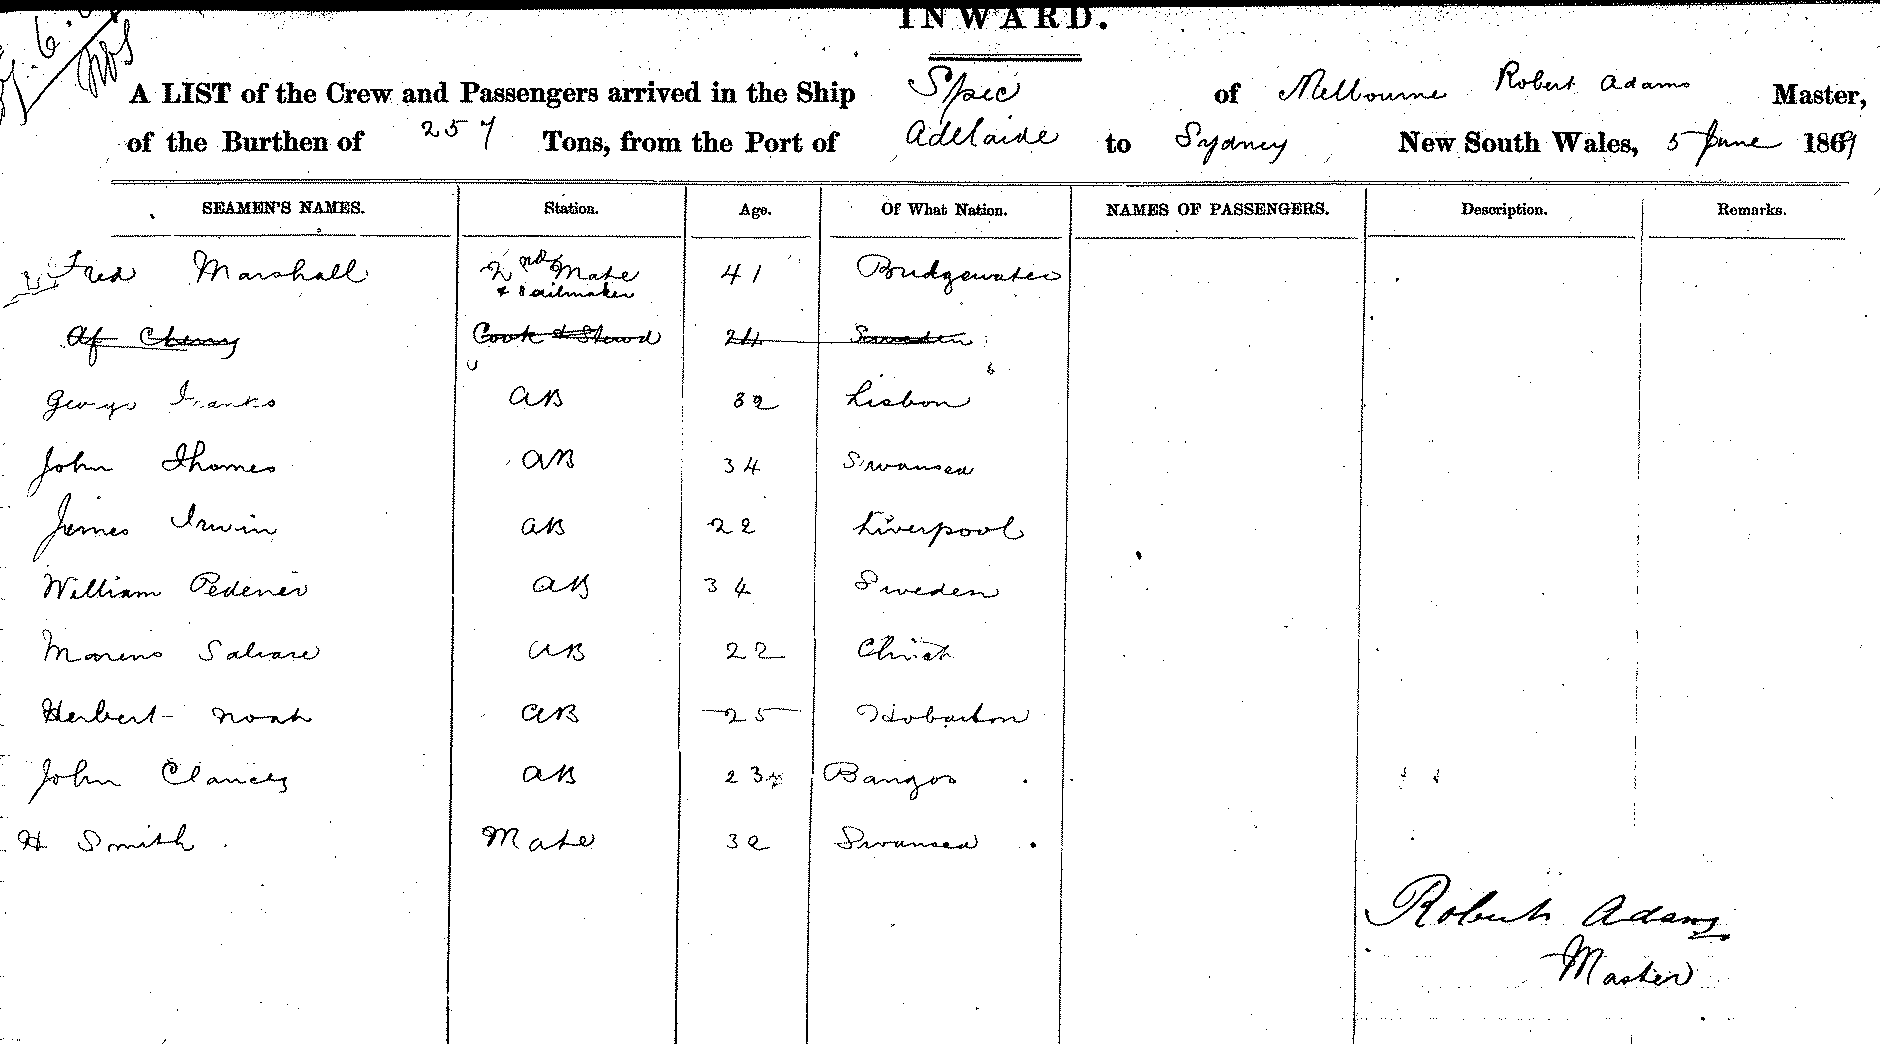 INWARD.
A LIST of the Crew and Passengers arrived in the Ship Spec of Melbourne Robert Adams Master,
of the Burthen of 257 Tons, from the Port of Adelaide to Sydney New South Wales, 5 June 1869
SEAMEN'S NAMES. Station. Age. Of What Nation. NAMES OF PASSENGERS. Description. Remarks.
Fred Marshall 2nd Mate 41 Bridgewater
& Sailmaker
Cook & Stewd 24 Sweden
George Franks AB 32 Lisbon
John Thomas AB 34 Swansea
James Irwin AB 22 Liverpool
William AB 34 Sweden
AB 22
Herbert Noah AB 25 Hobarton
John Clancy AB 23 Bangor
H Smith Mate 32 Swansea
Robert Adams
Master